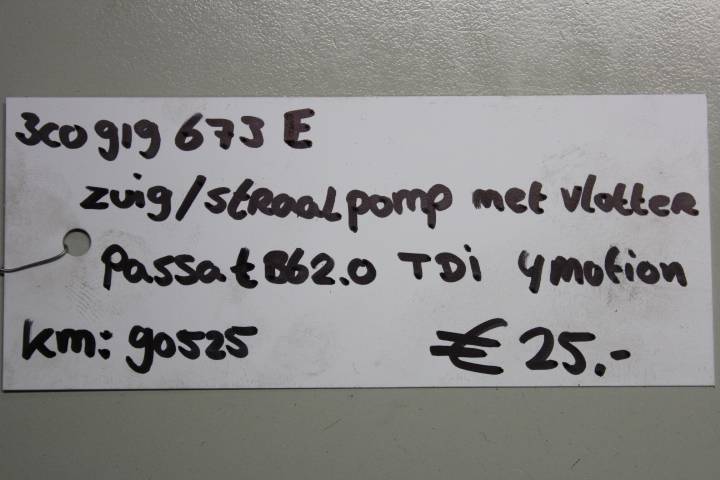 3C0 919 673 E
zuig/straalpomp met vlotter
Passat B6 2.0 TDi 4motion
km: 90525 € 25.-